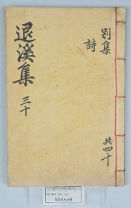 別集
詩
退溪集
三十
共四十